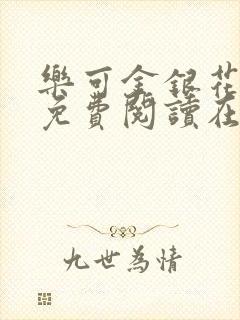 樂可金銀花
免費閱讀在
九世為情